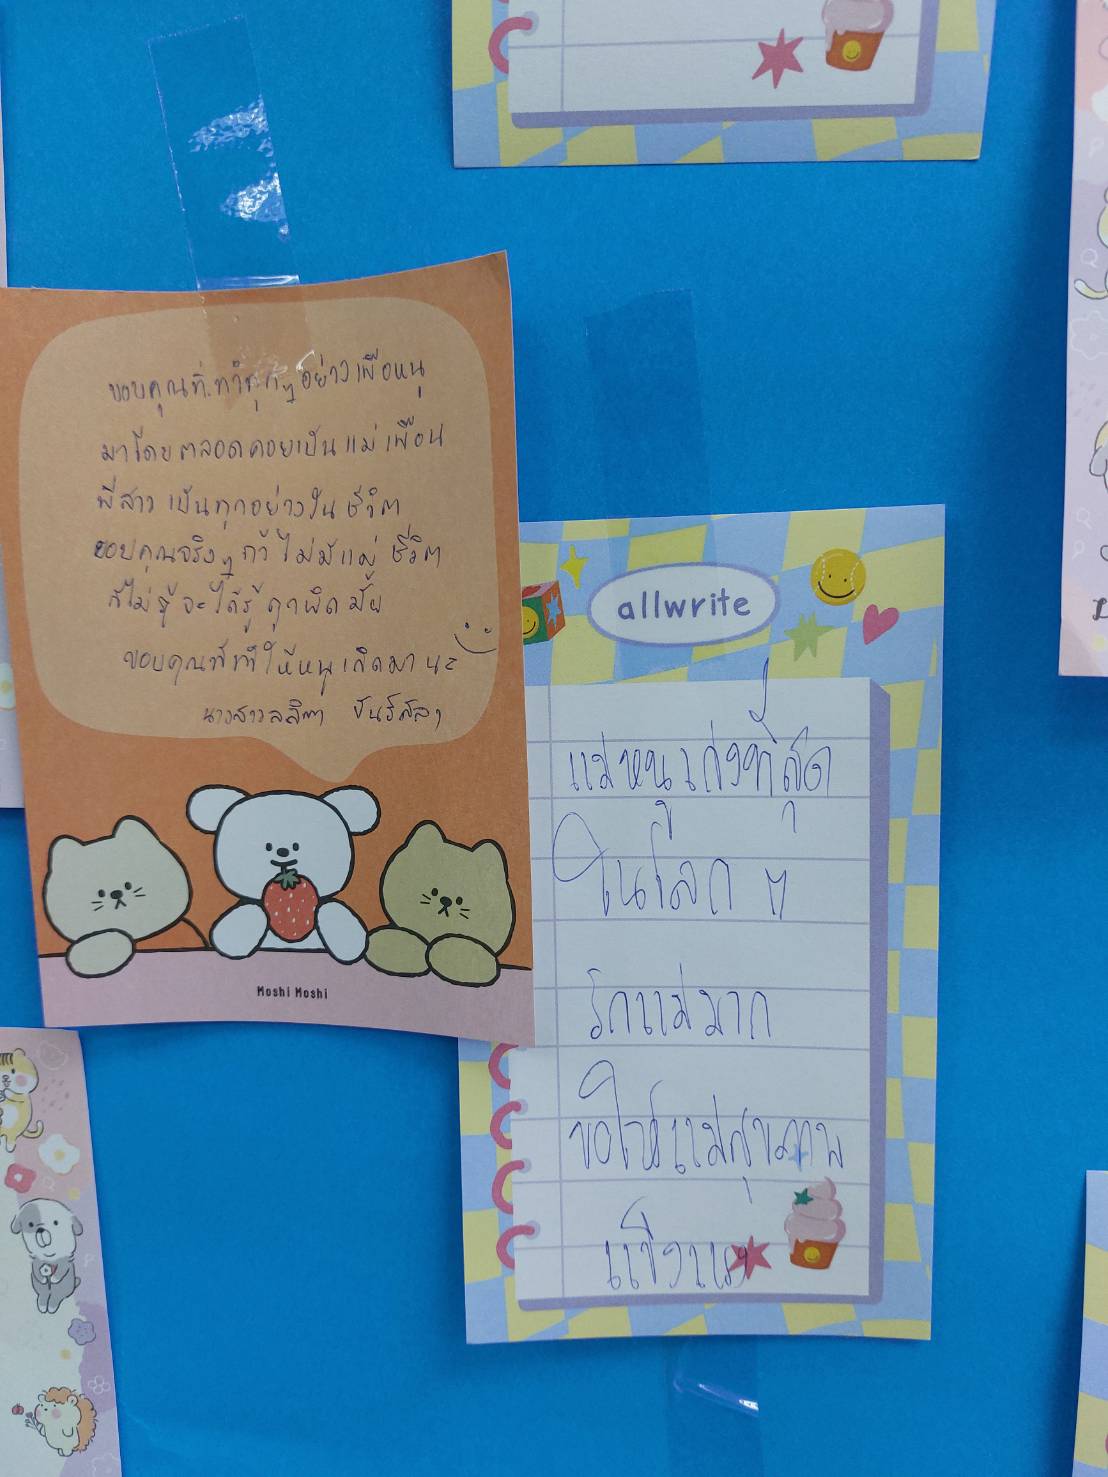 ขอบคุณที่ทำทุกๆอย่างเพื่อหนู
มาโดยตลอดคอยเป็นแม่ เพื่อน
พี่สาว เป็นทุกอย่างในชีวิต
ขอบคุณจริงๆ ถ้าไม่มีแม่ ชีวิต
ก็ไม่รู้จะได้รู้ถูกผิดมั้ย
ขอบคุณที่ทำให้หนูเกิดมานะ
นางสาวลลิตา
Moshi Moshi
allwrite
แม่หนูเก่งที่สุด
ในโลก ๆ
รักแม่มาก
ขอให้แม่สุขภาพ
แข็งแรง